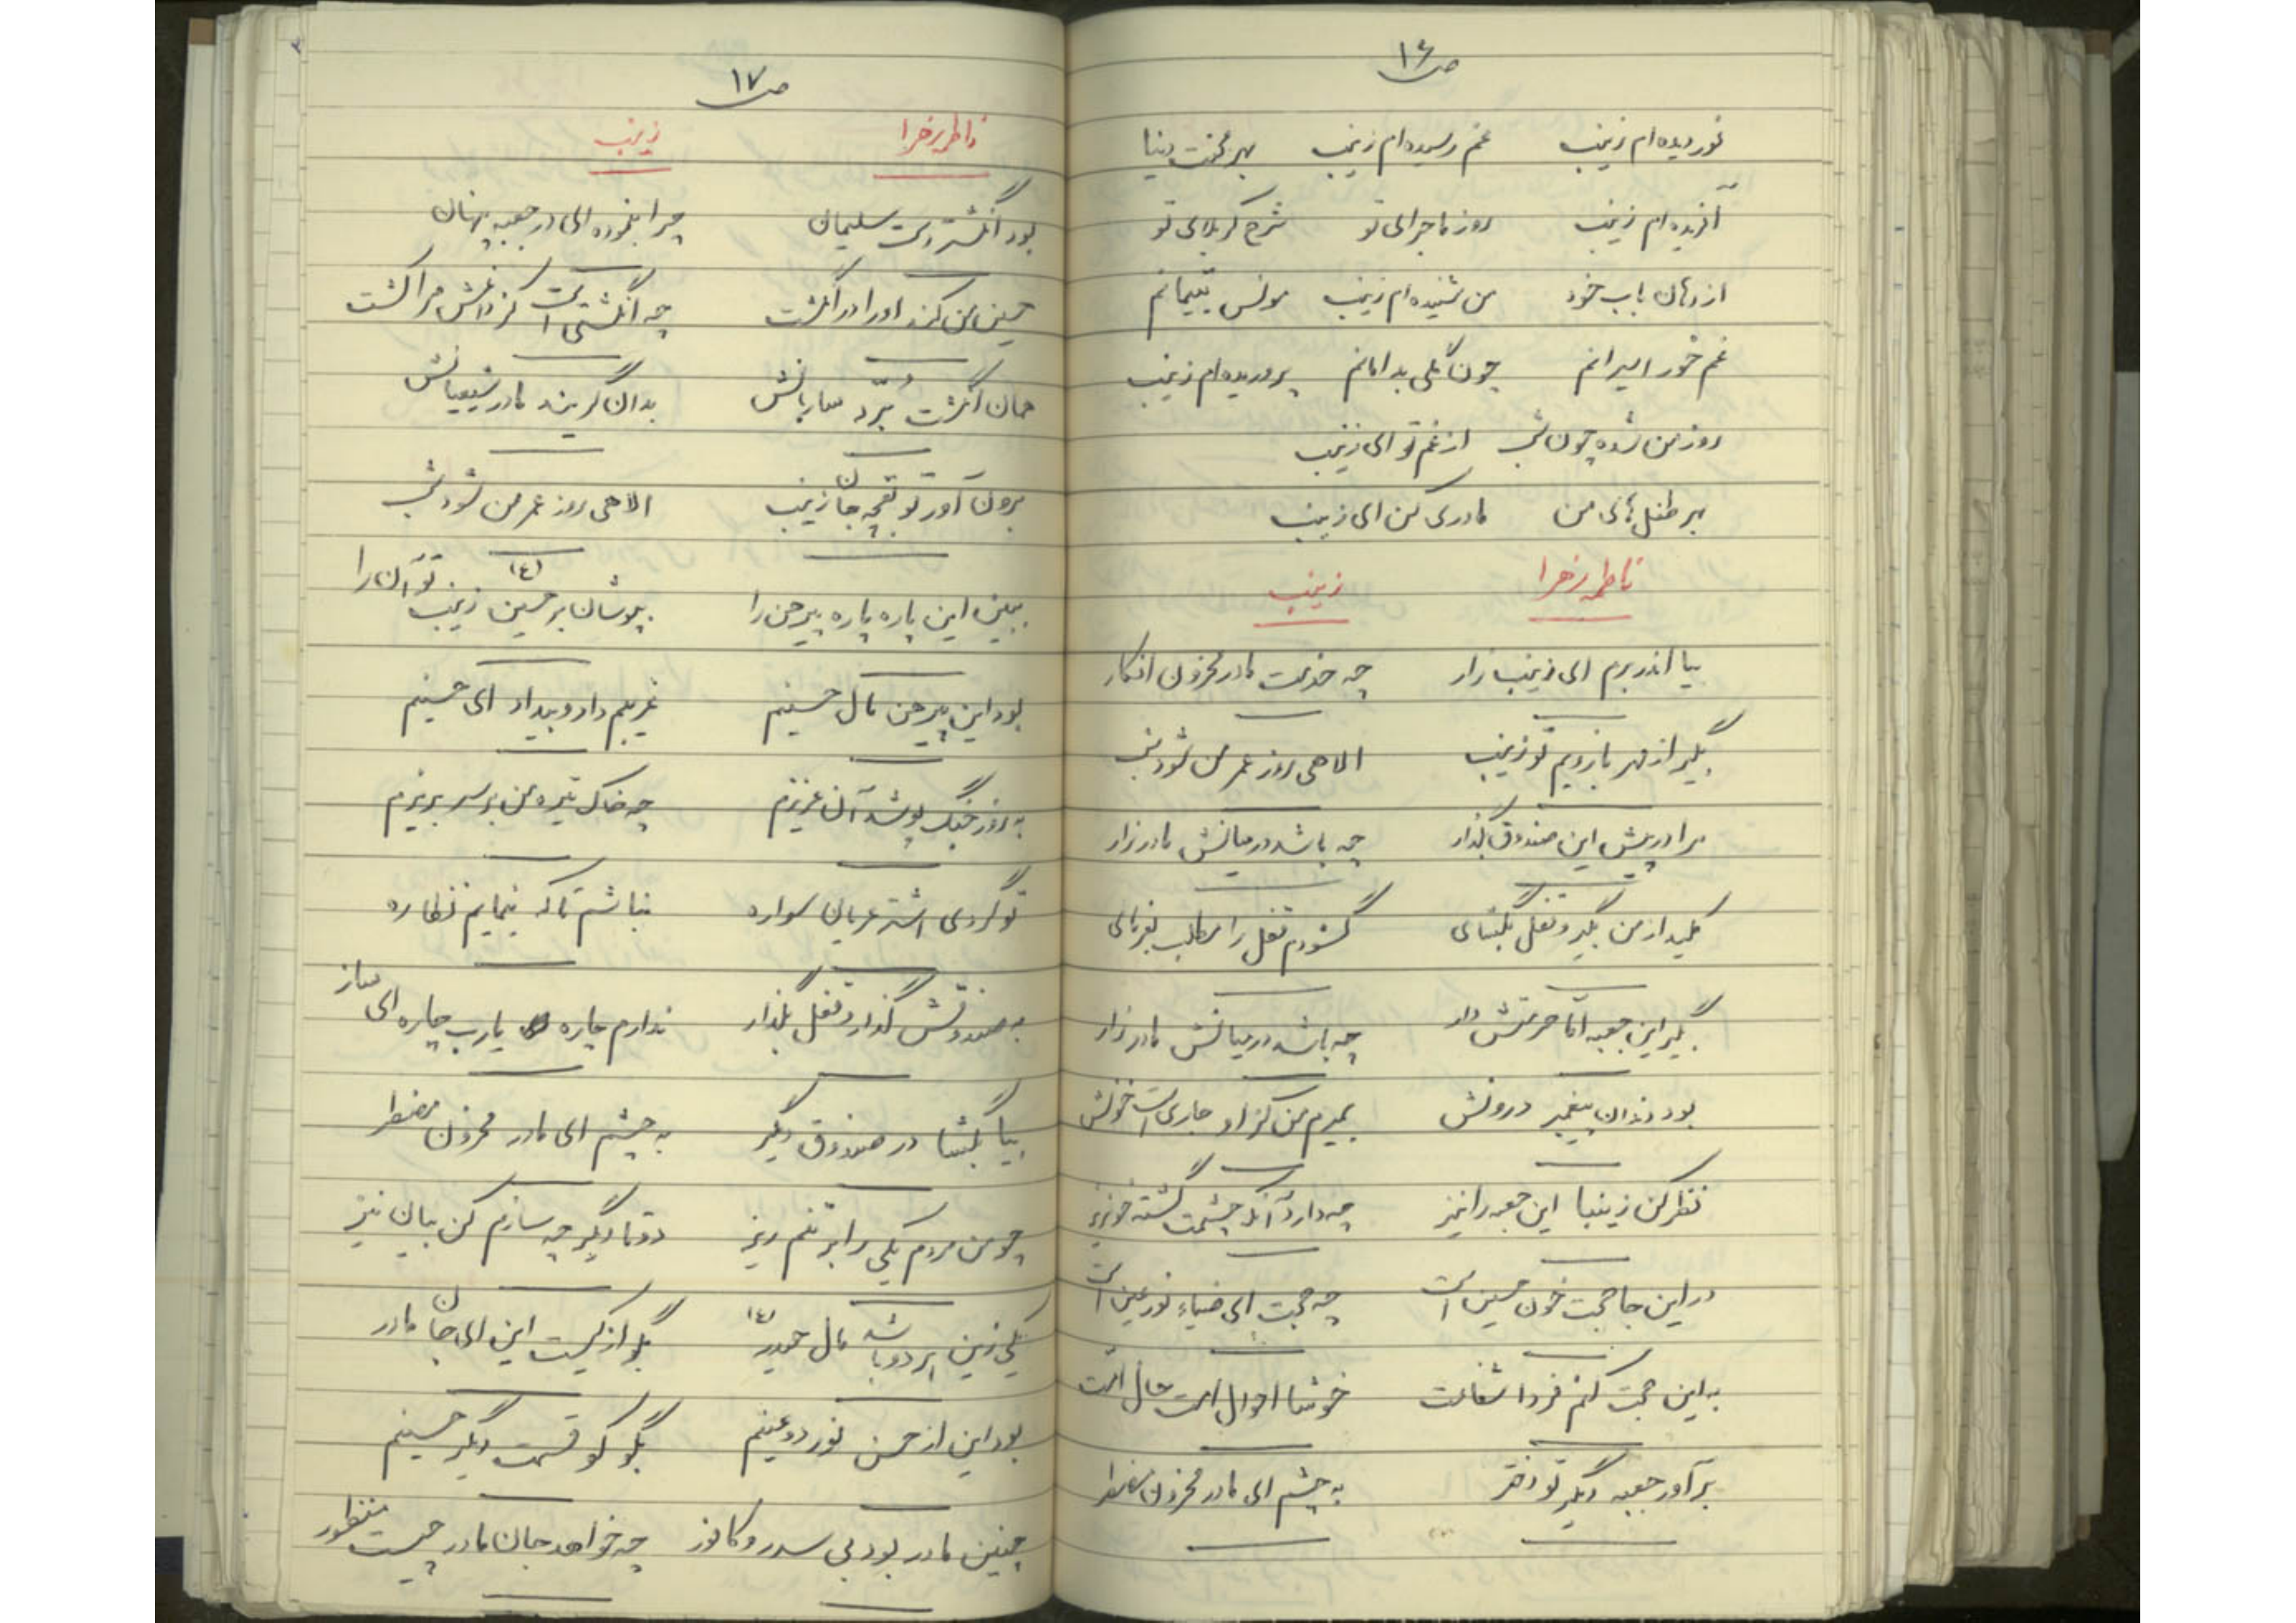 ص ۱۶
نور دیده ام زینب غم رسیده ام زینب بهر محنت دنیا
آفریده ام زینب روز ماجرای تو شرح کربلای تو
از دهان باب خود من شنیده ام زینب مونس یتیمانم
غم خور اسیرانم چون گلی بدامانم پروریده ام زینب
روز من شده چون شب از غم تو ای زینب
بهر طفل های من مادری کن ای زینب
فاطمه زهرا زینب
بیا اندر برم ای زینب زار چه خدمت مادر محزون افکار
بگیر از مهر بازویم تو زینب الاهی روز عمر من شود شب
مرا در پیش این صندوق بگذار چه باشد در میانش مادر زار
کلید از من بگیر و قفل بگشای گشودم قفل را مطلب بفرمای
بگیر این جعبه اما حرمتش دار چه باشد در میانش مادر زار
بود دندان پیغمبر درونش بمیرم من کز او جاری است خونش
نظر کن زینبا این جعبه را نیز چه دارد آنکه چشمت گشته خونریز
در این جا حجت خون حسین است چه حجت ای ضیاء نور عین است
به این حجت کنم فردا شفاعت خوشا احوال امت حال امت
برآور جعبه دیگر تو دختر به چشم ای مادر محزون مضطر
ص ۱۷
فاطمه زهرا زینب
بود انگشتریت سلیمان چرا بنموده ای در جعبه پنهان
حسین من کند او را در انگشت چه انگشتی است کز داغش مرا کشت
همان انگشت بُرّد ساربانش بدان گریند مادر شیعیانش
برون آور تو بقچه جان زینب الاهی روز عمر من شود شب
ببین این پاره پاره پیرهن را بپوشان بر حسین (ع) زینب تو آن را
بود این پیرهن مال حسینم غریبم داد و بیداد ای حسینم
به روز جنگ پوشد آن عزیزم چه خاک تیره من بر سر بریزم
تو گردی اشتر عریان سواره نباشم تا که بنمایم نظاره
به صندوقش گذار و قفل بگذار ندارم چاره یارب چاره ای ساز
بیا بگشا در صندوق دیگر به چشم ای مادر محزون مضطر
چو من مردم یکی را بر تنم ریز دو تا دیگر چه سازم کن بیان نیز
یکی زین هر دو باشد مال حیدر (ع) بگو از کیست این ای جان مادر
بود این از حسن نور دو عینم بگو کو قسمت دیگر حسینم
چنین مادر بود بی سدر و کافور چه خواهد جان مادر چیست منظور